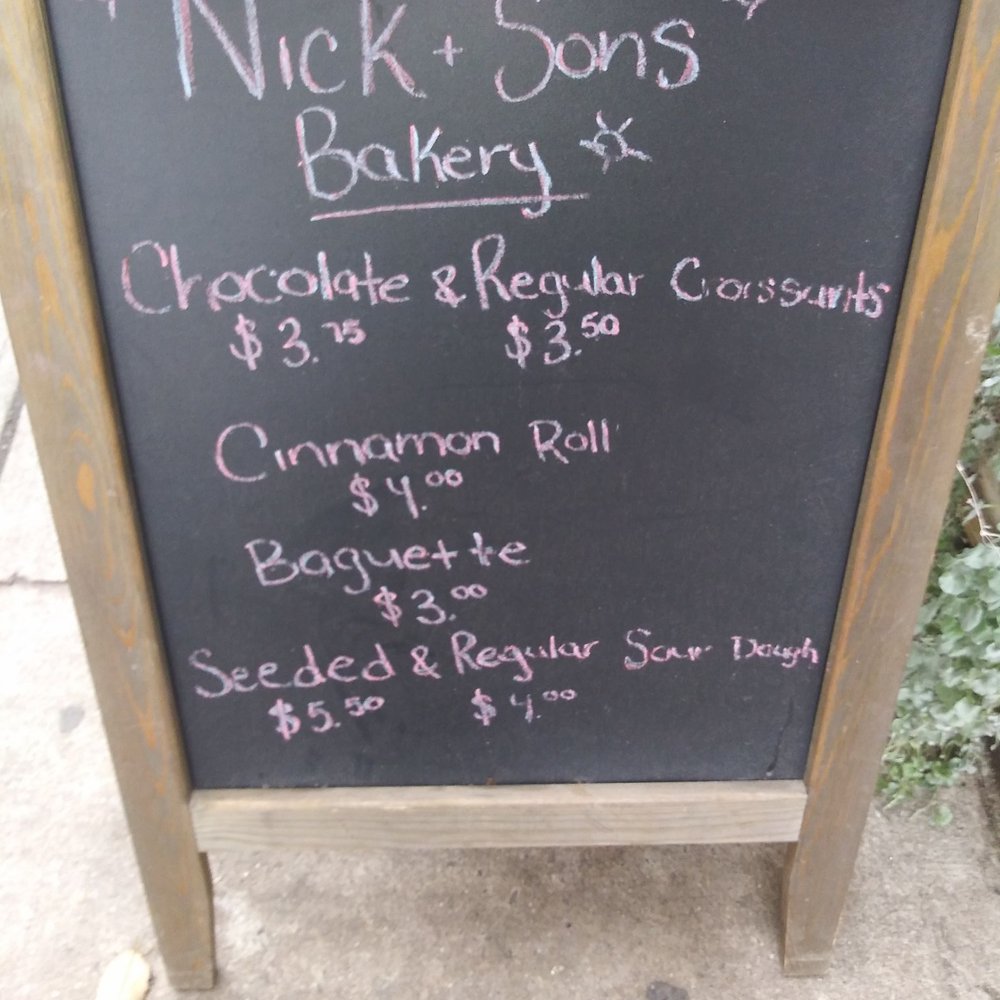 Nick + Sons
Bakery
Chocolate & Regular Croissants
$3.75 $3.50
Cinnamon Roll
$4.00
Baguette
$3.00
Seeded & Regular Sour Dough
$5.50 $4.00